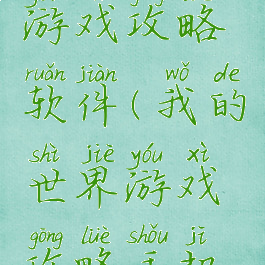 游戏攻略
ruǎn jiàn wǒ de
软件(我的
shì jiè yóu xì
世界游戏
gōng lüè shǒu jī
攻略手机